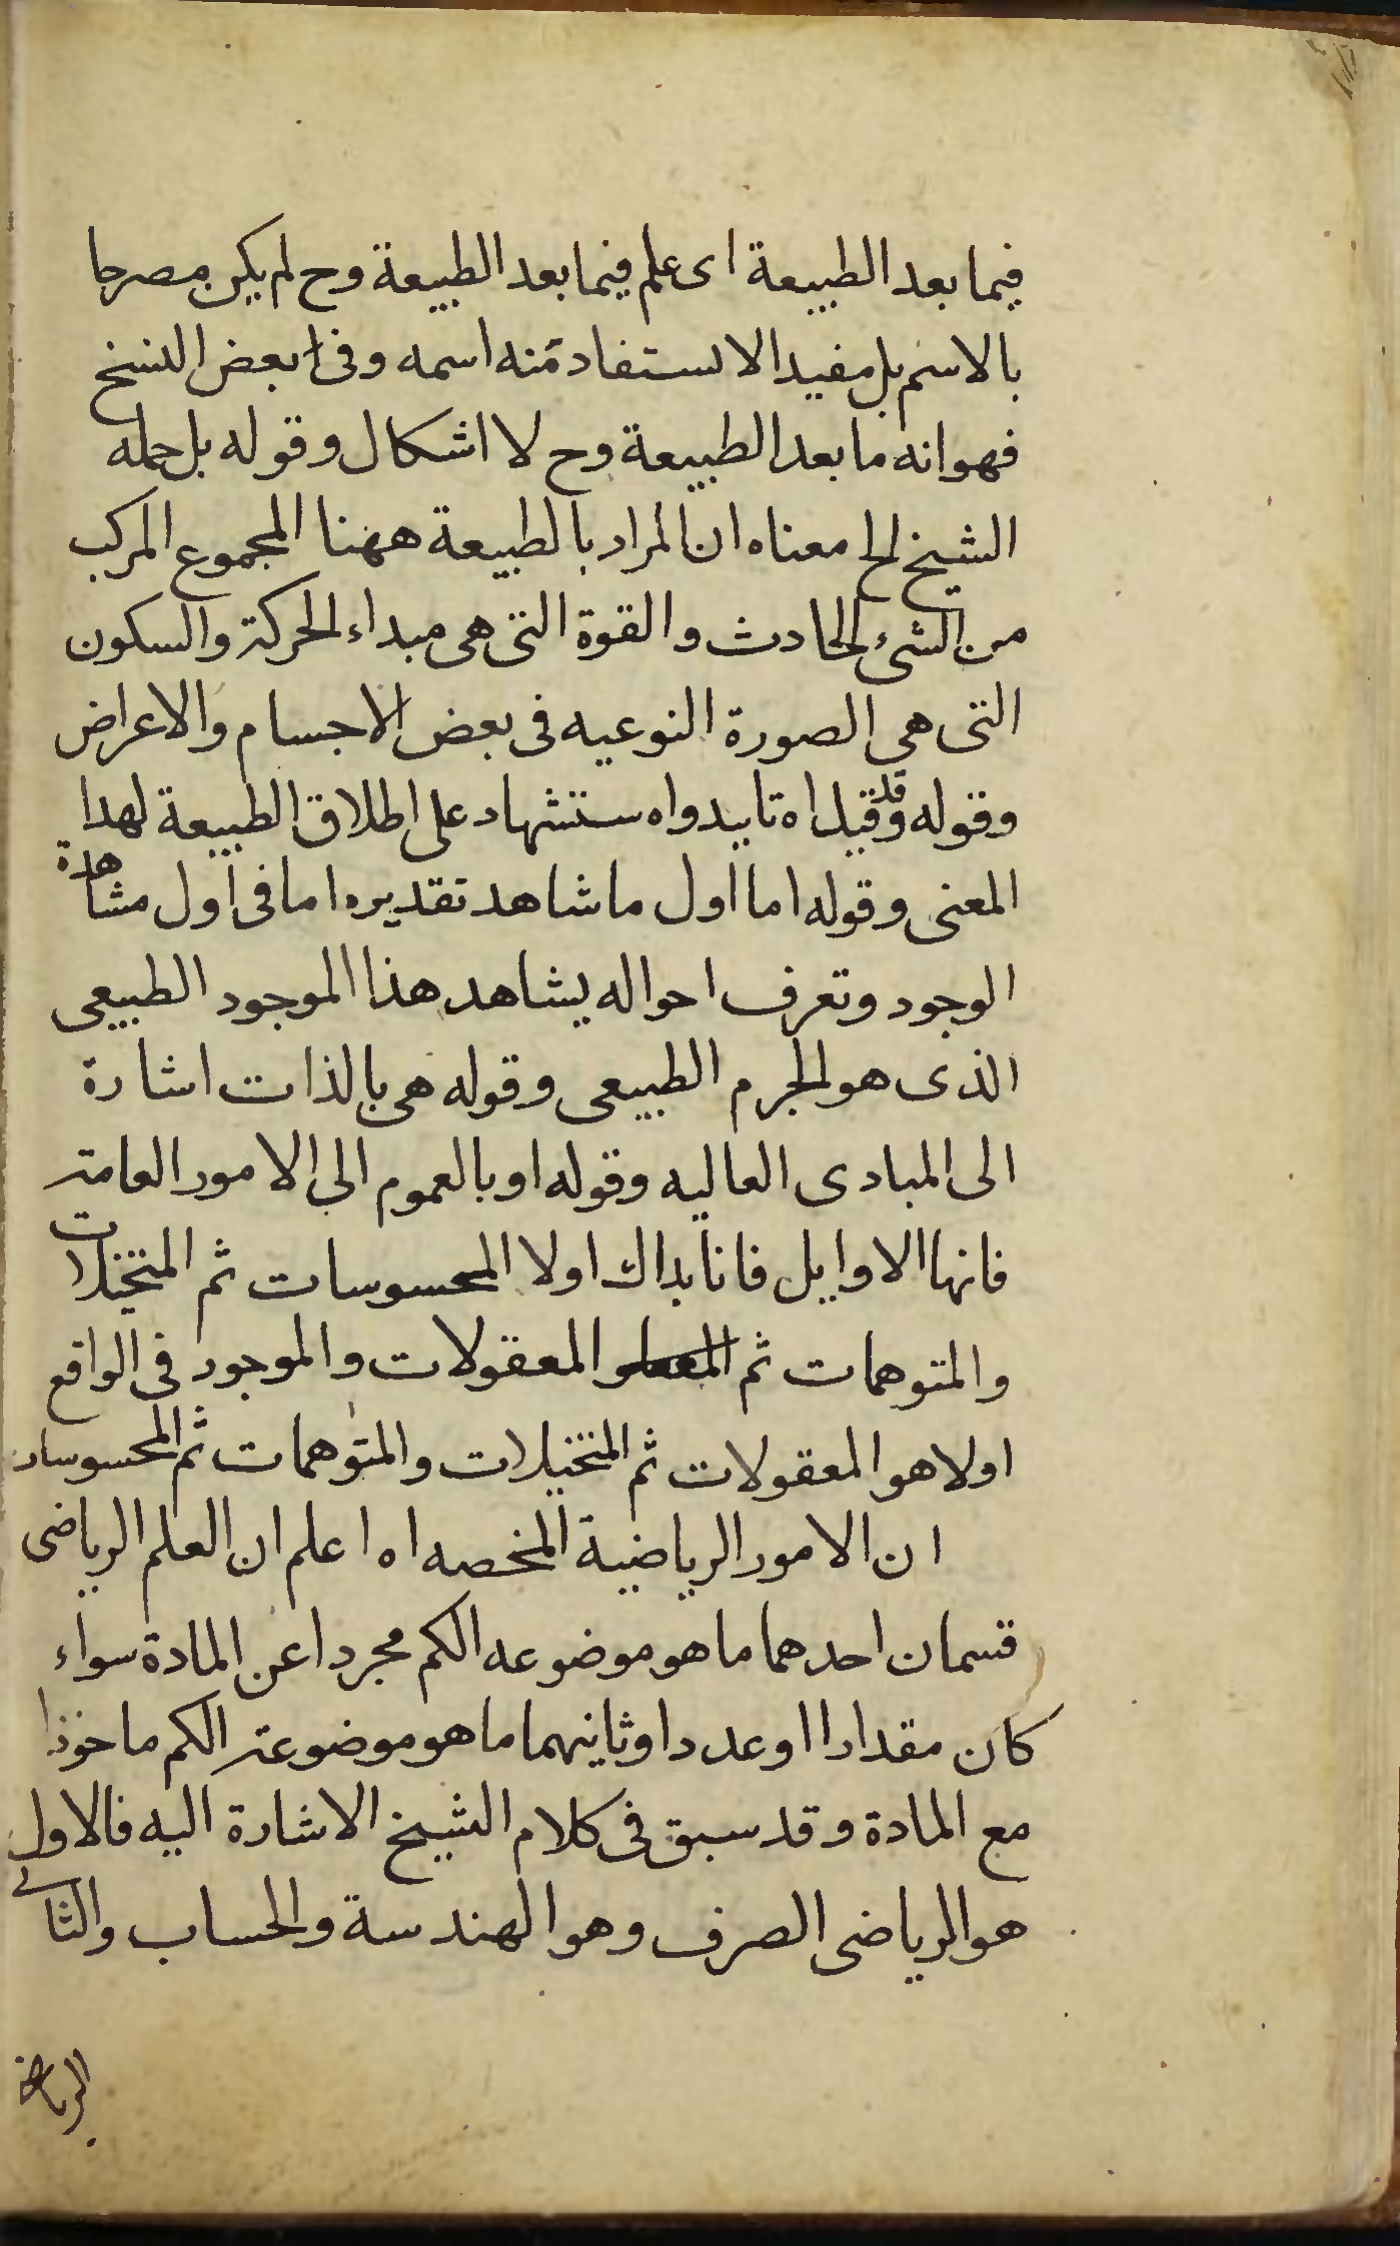 فيما بعد الطبيعة اى علم فيما بعد الطبيعة وح لم يكن مصرحا
بالاسم بل مفيد الا يستفاد منه اسمه وفى بعض النسخ
فهو انه ما بعد الطبيعة وح لا اشكال وقوله بل جمله
الشيخ الخ معناه ان المراد بالطبيعة ههنا المجموع المركب
من الشىء الحادث والقوة التى هى مبداء الحركة والسكون
التى هى الصورة النوعيه فى بعض الاجسام والاعراض
وقوله وقد قيل اه تاييد واه ستشهاد على اطلاق الطبيعة لهدا
المعنى وقوله اما اول ما شاهد تقديره اما فى اول مشاهدة
الوجود وتعرف احواله يشاهد هذا الموجود الطبيعى
الذى هو الجرم الطبيعى وقوله هى بالذات اشارة
الى المبادى العاليه وقوله او بالعموم الى الامور العامة
فانها الاوايل فانا بداك اولا المحسوسات ثم المتخيلات
والمتوهمات ثم المعقولات والموجود فى الواقع
اولا هو المعقولات ثم المتخيلات والمتوهمات ثم المحسوسات
ان الامور الرياضية المخصه اه اعلم ان العلم الرياضى
قسمان احدهما ما هو موضوعه الكم مجردا عن المادة سواء
كان مقدارا او عددا وثانيهما ما هو موضوعة الكم ماخوذا
مع المادة وقد سبق فى كلام الشيخ الاشارة اليه فالاول
هو الرياضى الصرف وهو الهندسة والحساب والثانى
الرياضة